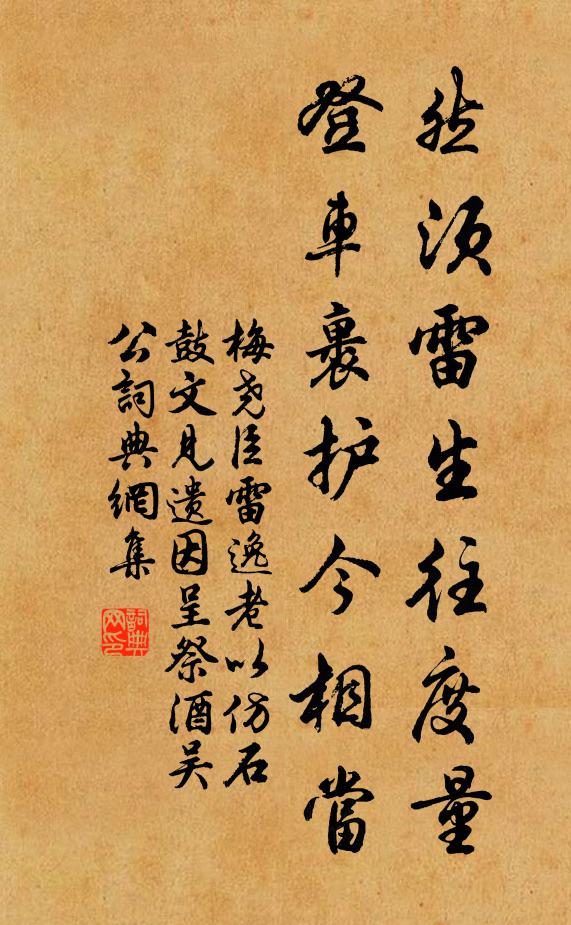 然须雷生往度量
登車裹护今相當
梅尧臣雷逸老以仿石
鼓文见遗因呈祭酒吴
公詞典網集
詞典网印